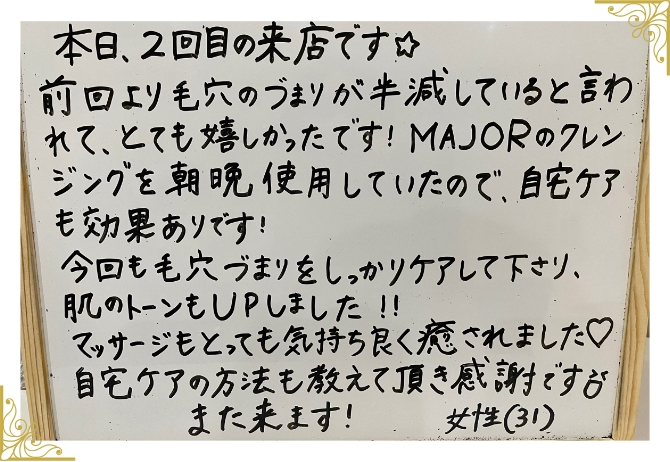 本日、2回目の来店です☆
前回より毛穴のづまりが半減していると言わ
れて、とても嬉しかったです! MAJORのクレン
ジングを朝晩使用していたので、自宅ケア
も効果ありです!
今回も毛穴づまりをしっかりケアして下さり、
肌のトーンもUPしました!!
マッサージもとっても気持ち良く癒されました♡
自宅ケアの方法も教えて頂き感謝です
また来ます! 女性(31)